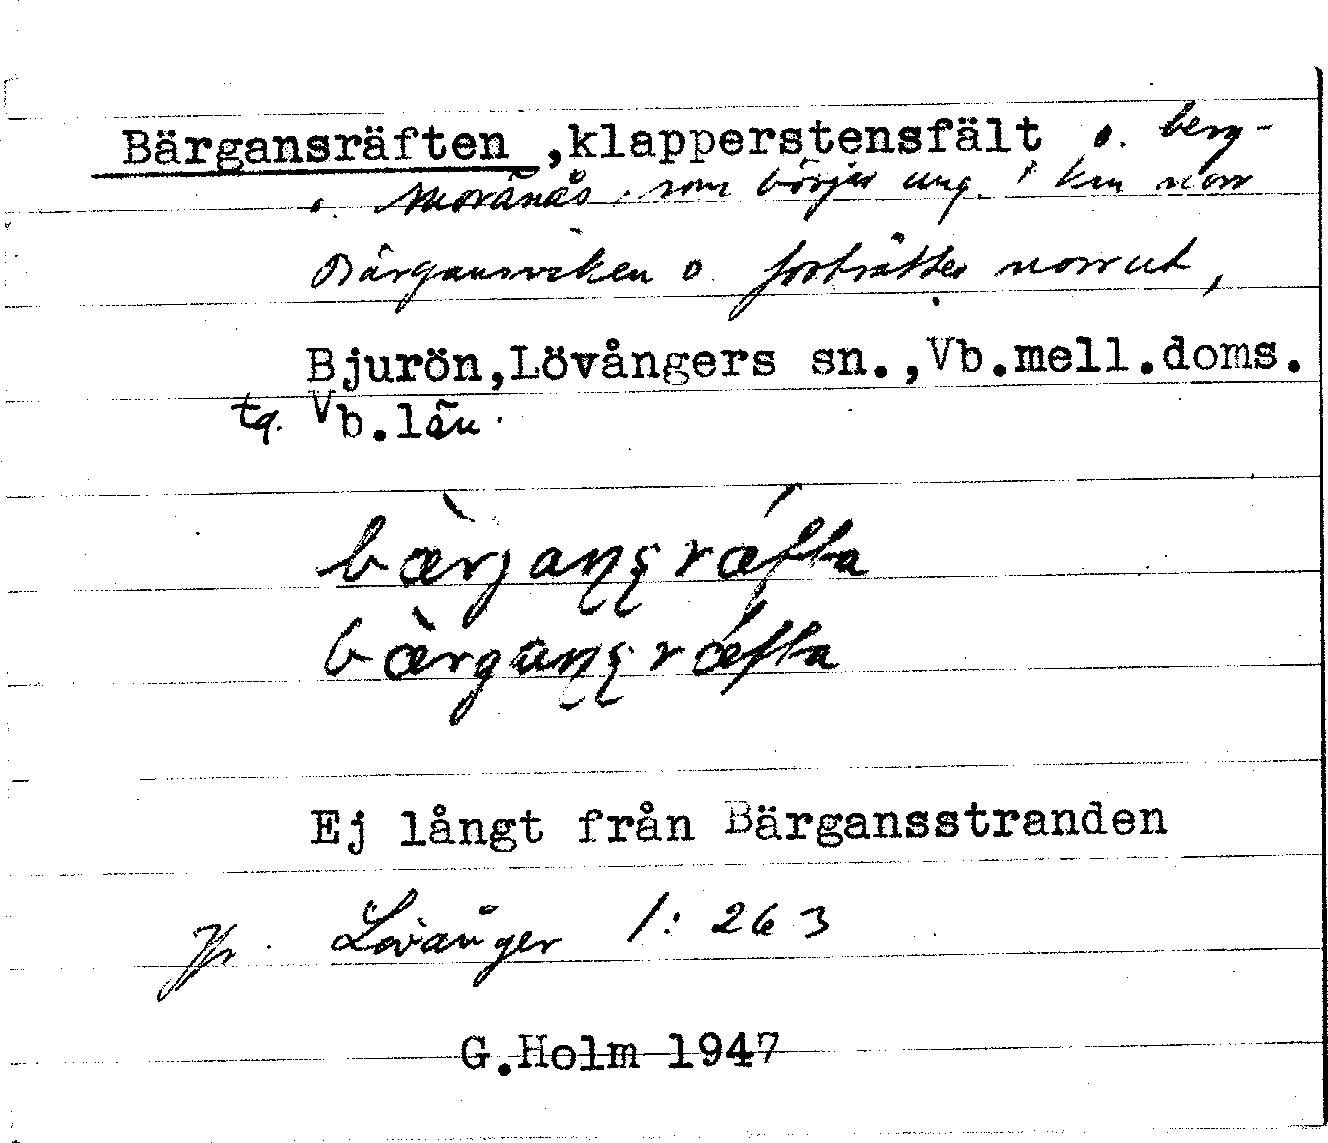 Bärgansräften ,klapperstensfält , o. berg-
o. moränås, som börjar ung. 1 km norr
Bärgansviken o. fortsätter norrut,
Bjurön,Lövångers sn.,Vb.mell.doms.
tg. Vb.län.
bær̀jaṇṣrǽfta
bær̀gaṇṣrǽfta
Ej långt från Bärgansstranden
Jfr Lövånger 1: 263
G.Holm 1947